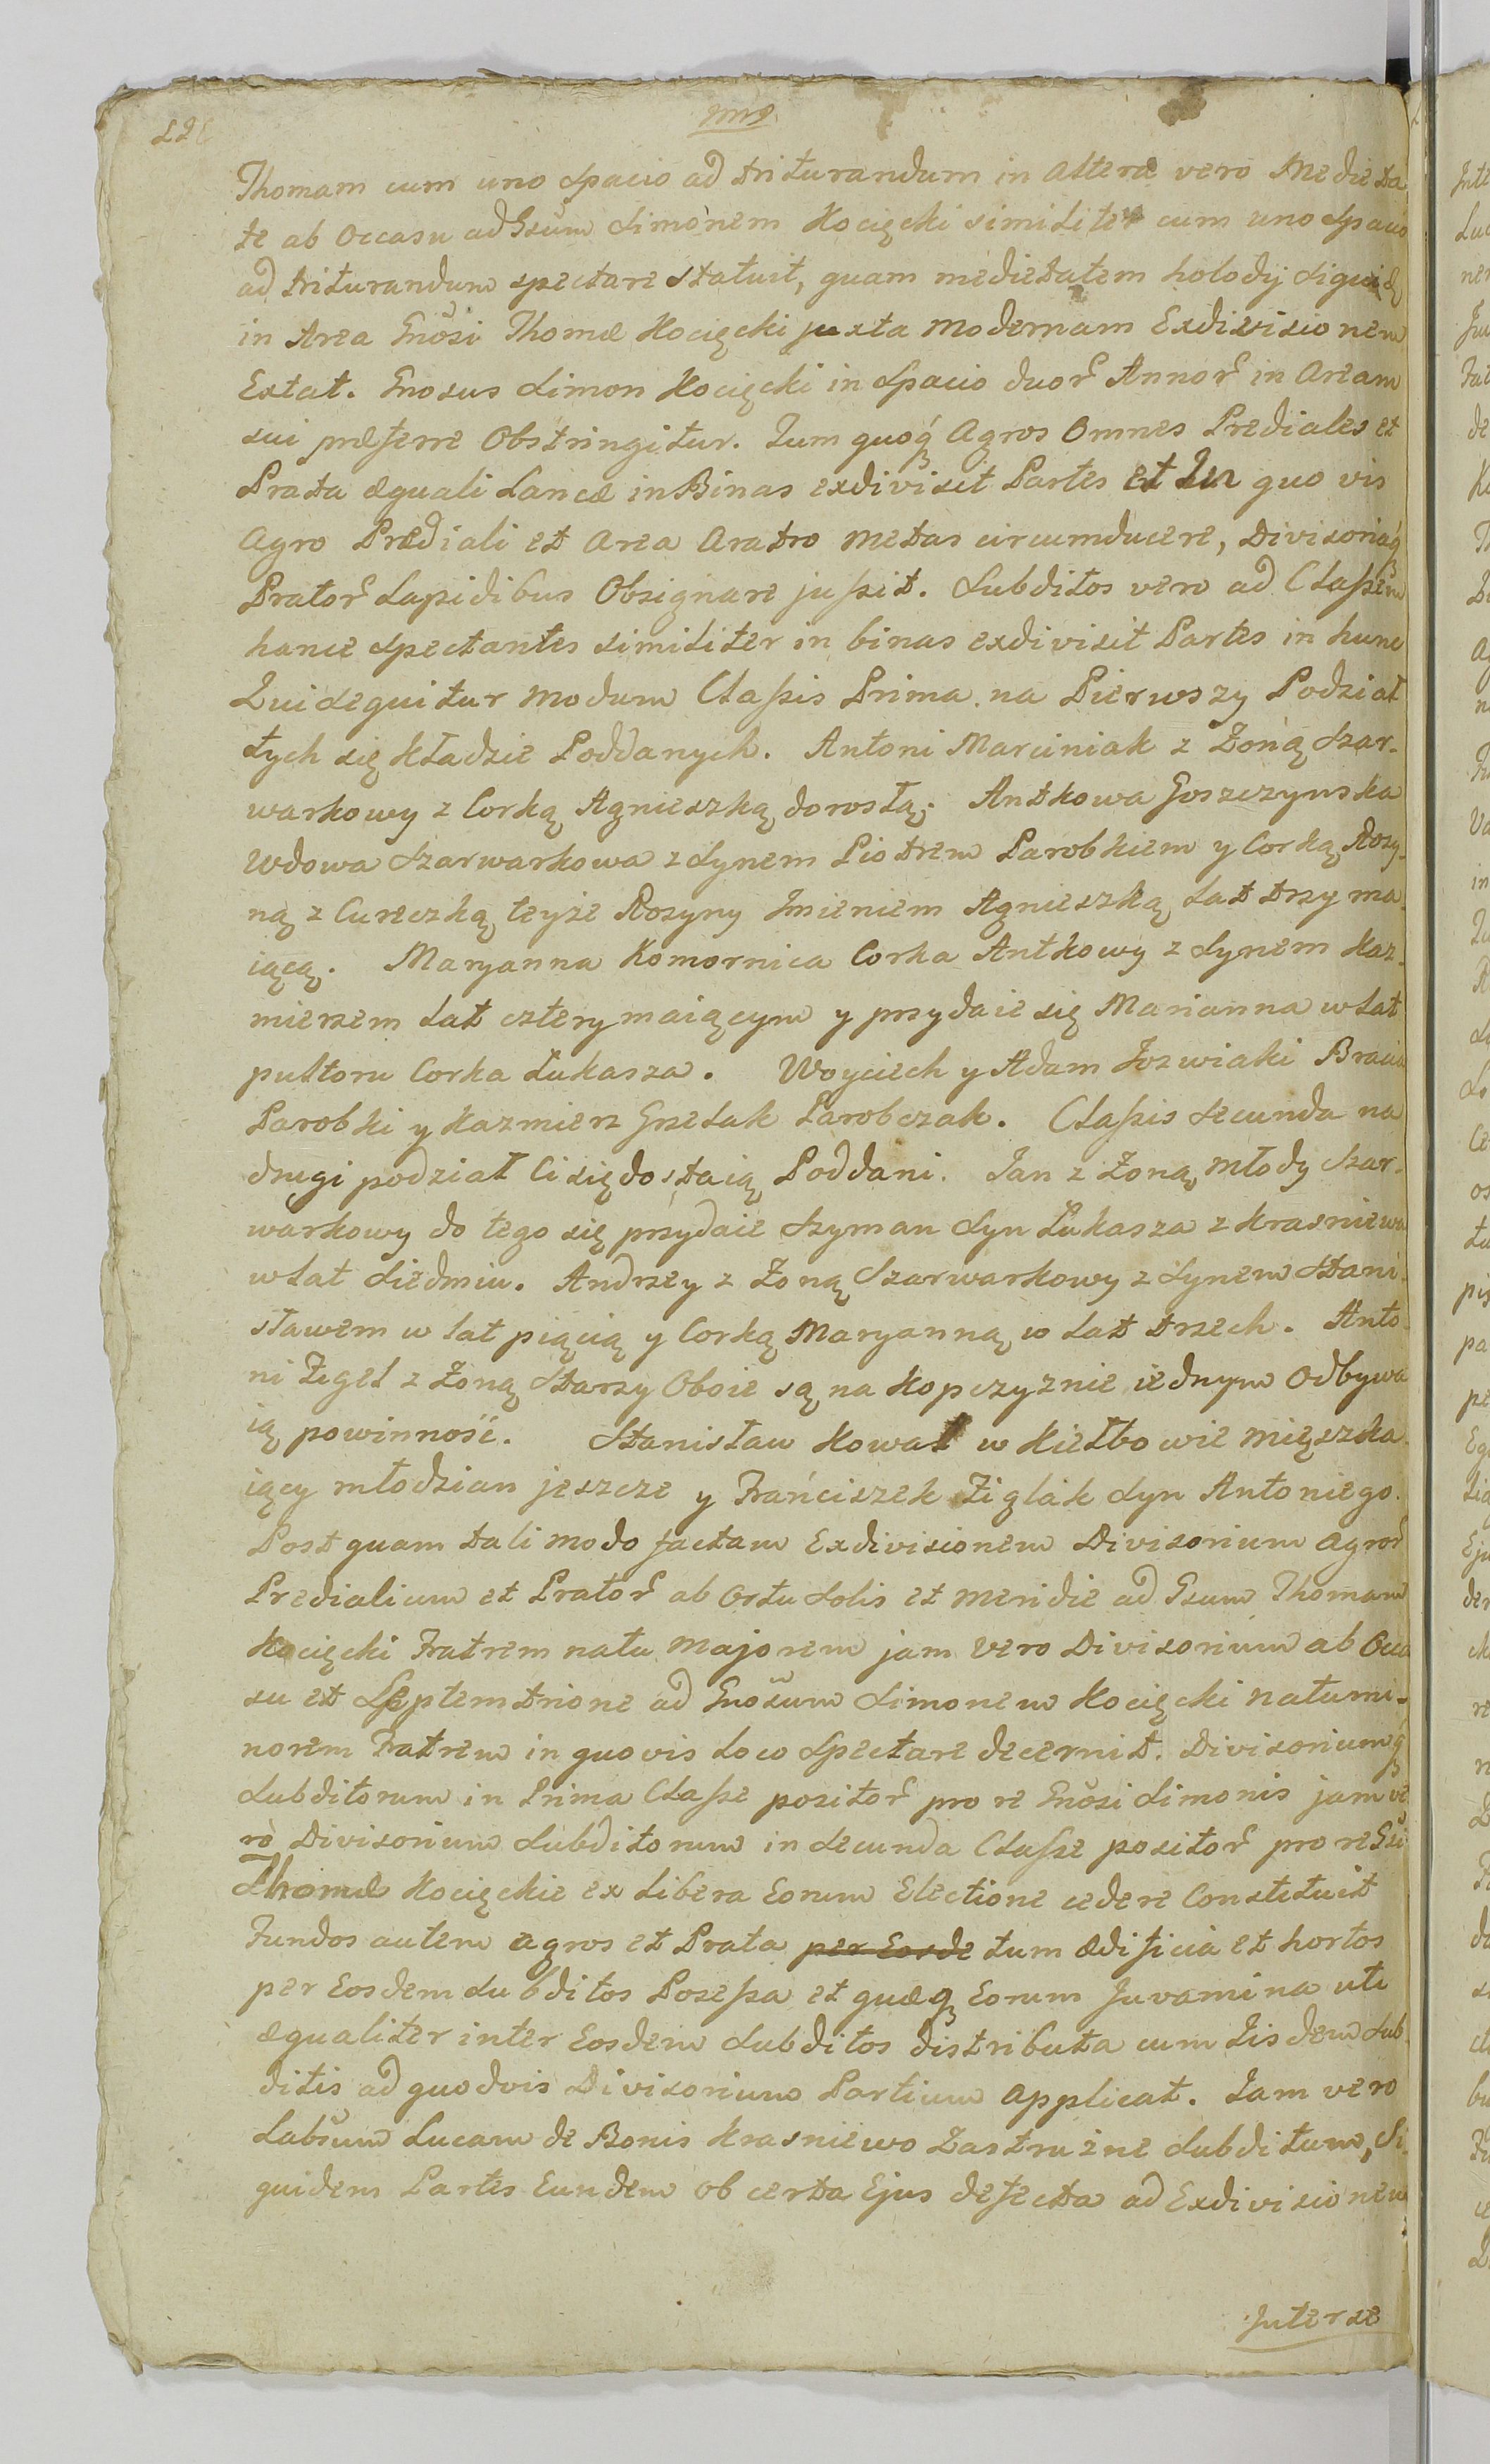 Thomam cum uno Spacio ad triturandum in Altera vero Medieta
te ab Occasu ad Gsum Simonem Kocięcki similiter cum uno Spacio
ad triturandum spectare Statuit, quam medietatem holodij
in Area Gnosi Thomæ Kocięcki juxta Modernam Exdivisionem
Extat. Gnosus Simon Kocięcki in Spacio duor Annor in Aream
sui præferre Obstringitur. Tum quoq Agros Omnes Prediales et
Prata æquali Lancæ in Binas exdivisit Partes et In quo vis
Agro Prædiali et Area Aratro Metas circumducere, Divisoriaq
Prator Lapidibus Obsignare jussit. Subditos vero ad Classem
hance Spectantes similiter in binas exdivisit Partes in hunc
Qui sequitur Modum Classis Prima. na Pierwszy Podział
tych się kładzie Poddanych. Antoni Marciniak z Żoną Szar-
warkowy z Corką Agnieszką dorosłą. Antkowa Goszczynska
Wdowa Szarwarkowa z Synem Piotrem Parobkiem y Corką Rozy-
ną z Cureczką teyże Rozyny Imieniem Agnieszką Lat trzy ma-
iącą. Maryanna Komornica Corka Antkowy z Synem Kaz-
mierzem Lat cztery maiącym y przydaie się Marianna w Lat
pułtoru Corka Łukasza. Woyciech y Adam Jozwiaki Bracia
Parobki y Kazmierz Grzelak Parobczak. Classis Secunda na
drugi podział Ci się dostaią Poddani. Jan z Żoną Młody Szar-
warkowy do tego się przydaie Szyman Syn Łukasza z Krasniewa
w Lat Siedmiu. Andrzey z Żoną Szarwarkowy z Synem Stani-
sławem w lat pięcią y Corką Maryanną w Lat trzech. Anto-
ni Zegel z Żoną Starzy Oboie są na Kopczyznie iednym Odbywa
ią powinność. Stanisław Kowal w Kiełbowie Mięszka-
iący młodzian jeszcze y Franciszek Ziglak Syn Antoniego.
Post quam tali modo factam Exdivisionem Divisorium Agror
Predialium et Prator ab Ortu Solis et Meridie ad Gsum Thomam
Kocięcki Fratrem natu Majorem jam vero Divisorium ab Occa
su et Septemtrione ad Gnosum Simonem Kocięcki natumi-
norem Fratrem in quovis Loco Spectare decernit. Divisoriumq
Subditorum in Prima Classe positor pro re Gnosi Simonis jam ve
ro Divisorium Subditorum in Secunda Classe positor pro re Gsi
Thomæ Kocięckie ex Libera Eorum Electione cedere Constituit
Fundos autem agros et Prata per Eosde tum ædificia et hortos
per Eosdem Subditos Posessa et quæq Eorum Juvamina uti
æqualiter inter Eosdem Subditos distributa cum Iisdem Sub-
ditis ad quodvis Divisorium Partium Applicat. Jam vero
Labsum Lucam de Bonis Krasniewo Zastruzne Subditum, Si-
quidem Partes Eundem ob certa Ejus defecta ad Exdivisionem
Inter se